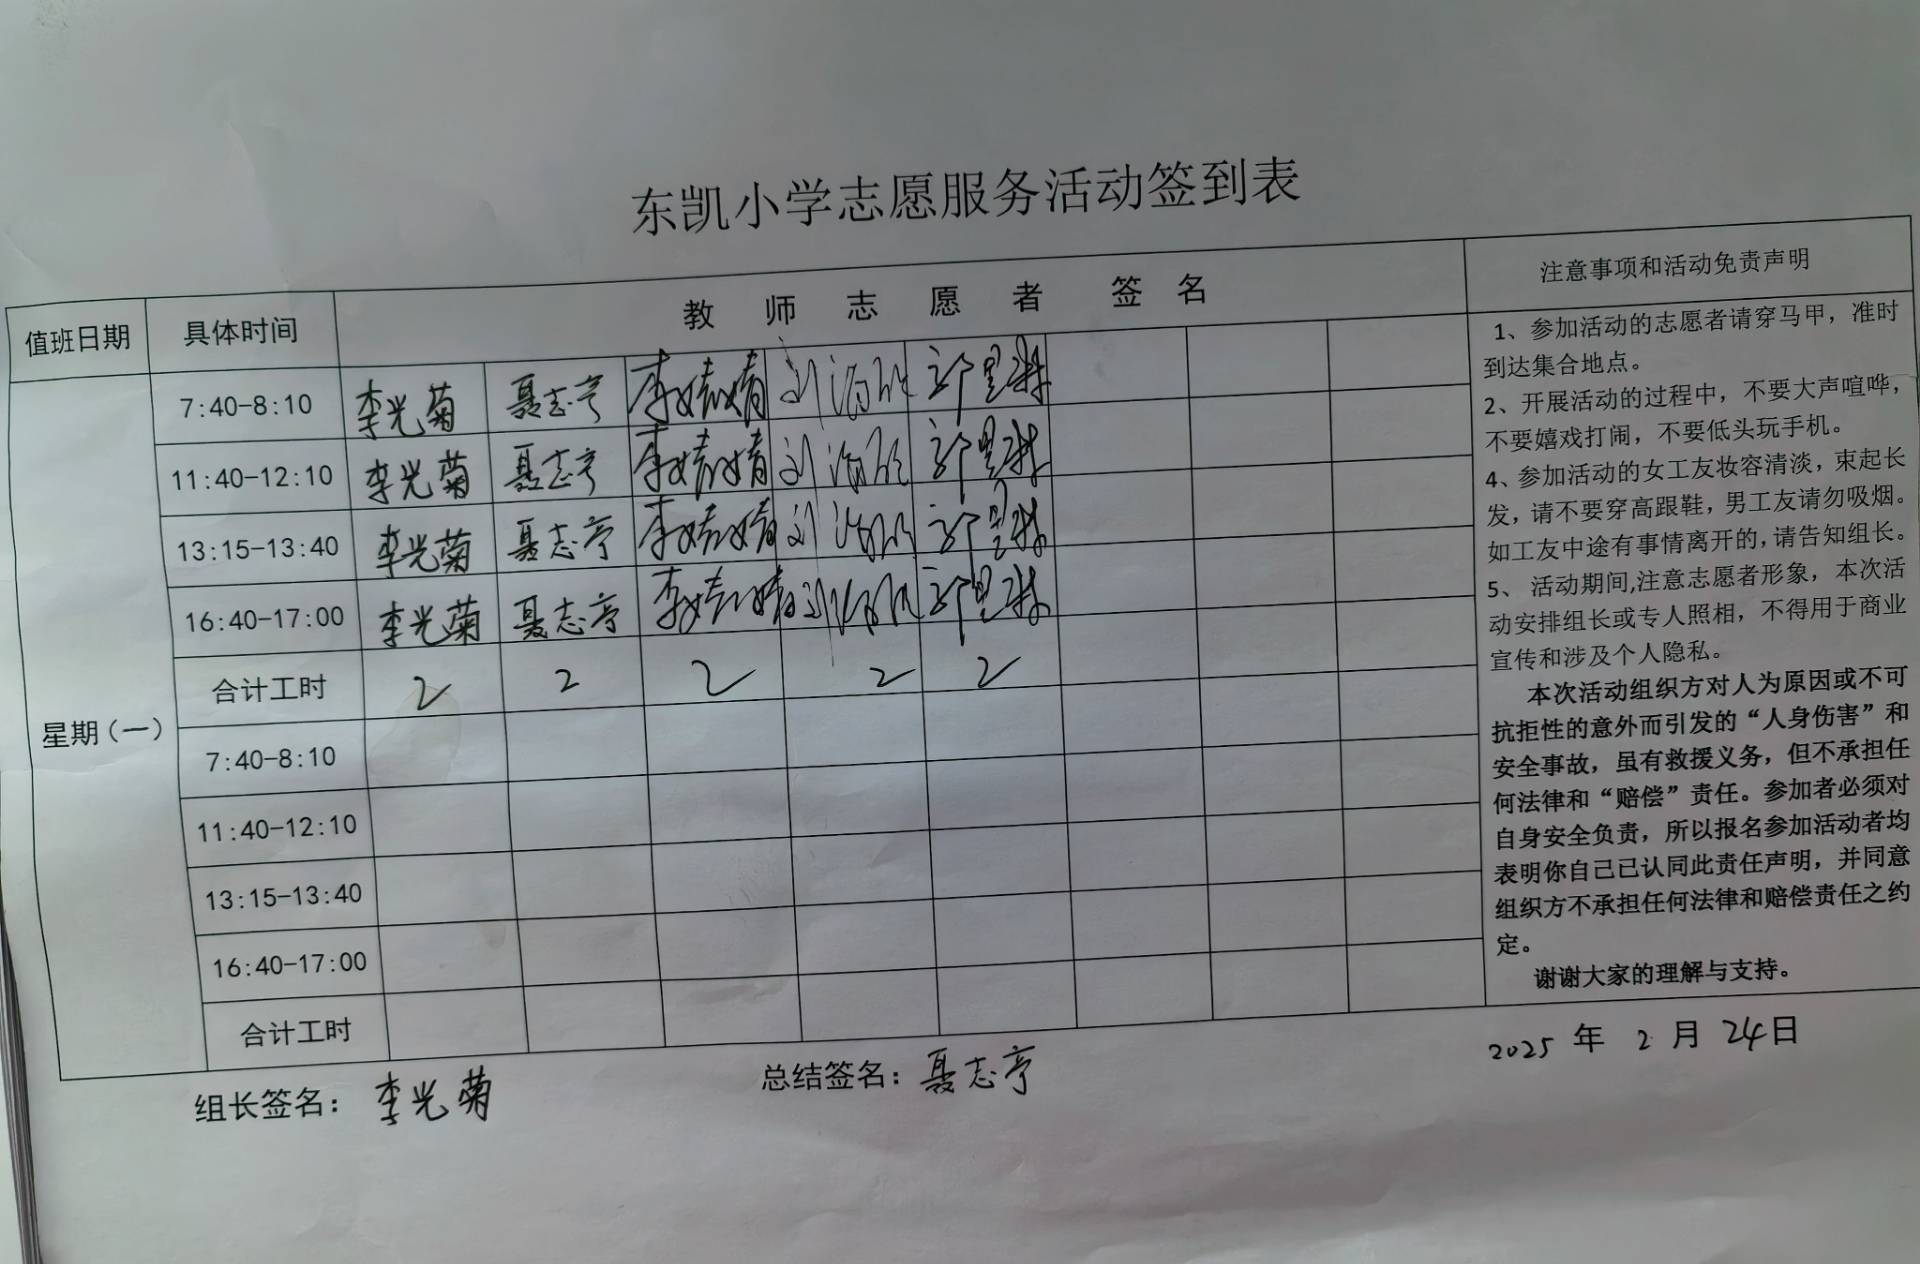 东凯小学志愿服务活动签到表
值班日期 具体时间 教师志愿者 签名 注意事项和活动免责声明
7:40-8:10 李光菊 聂志亭 李婧婧 刘
11:40-12:10 李光菊 聂志亭 李婧婧 刘
13:15-13:40 李光菊 聂志亭 李婧婧 刘
16:40-17:00 李光菊 聂志亭 李婧婧 刘
合计工时 2 2 2 2 2
星期(一)
7:40-8:10
11:40-12:10
13:15-13:40
16:40-17:00
合计工时
1、参加活动的志愿者请穿马甲，准时
到达集合地点。
2、开展活动的过程中，不要大声喧哗，
不要嬉戏打闹，不要低头玩手机。
4、参加活动的女工友妆容清淡，束起长
发，请不要穿高跟鞋，男工友请勿吸烟。
如工友中途有事情离开的,请告知组长。
5、 活动期间,注意志愿者形象，本次活
动安排组长或专人照相，不得用于商业
宣传和涉及个人隐私。
本次活动组织方对人为原因或不可
抗拒性的意外而引发的“人身伤害”和
安全事故，虽有救援义务，但不承担任
何法律和“赔偿”责任。参加者必须对
自身安全负责，所以报名参加活动者均
表明你自己已认同此责任声明，并同意
组织方不承担任何法律和赔偿责任之约
定。
谢谢大家的理解与支持。
组长签名：李光菊 总结签名：聂志亭 2025年2月24日